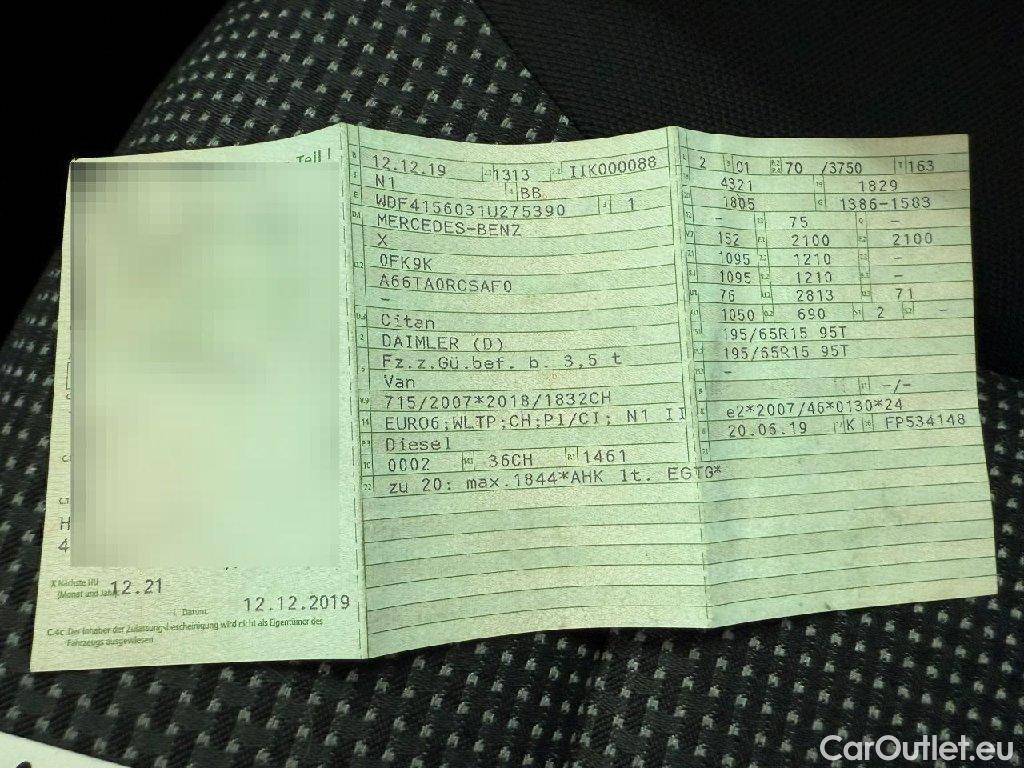 Teil I
H
4
X Nächste HU
(Monat und Jahr) 12.21
I Datum: 12.12.2019
C.4c Der Inhaber der Zulassungsbescheinigung wird nicht als Eigentümer des
Fahrzeugs ausgewiesen.
B 12.12.19 1313 IIK000088
N1 BB
E WDF4156031U275390 1
D.1 MERCEDES-BENZ
X
0FK9K
A66TA0RCSAF0
-
Citan
DAIMLER (D)
Fz.z.Gü.bef. b. 3,5 t
Van
715/2007*2018/1832CH
EURO6;WLTP;CH;PI/CI; N1 II
Diesel
0002 36CH 1461
22 zu 20: max.1844*AHK lt. EGTG*
2 01 70 /3750 163
4321 1829
1805 1386-1583
- 75 -
152 2100 2100
1095 1210 -
1095 1210 -
76 2813 71
1050 690 2 -
195/65R15 95T
195/65R15 95T
-
-/-
e2*2007/46*0130*24
20.06.19 K FP534148
21
CarOutlet.eu